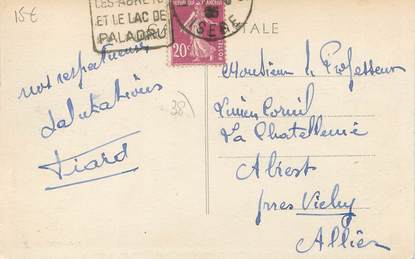 15€
LES ABRETS
ET LE LAC DE
PALADRU
ISERE
20c
POSTES
TALE
nos respectueuses
salutations
Tiard
38)
Monsieur le Professeur
Lucien Cornil
La Chatellenie
Abrest
près Vichy
Allier